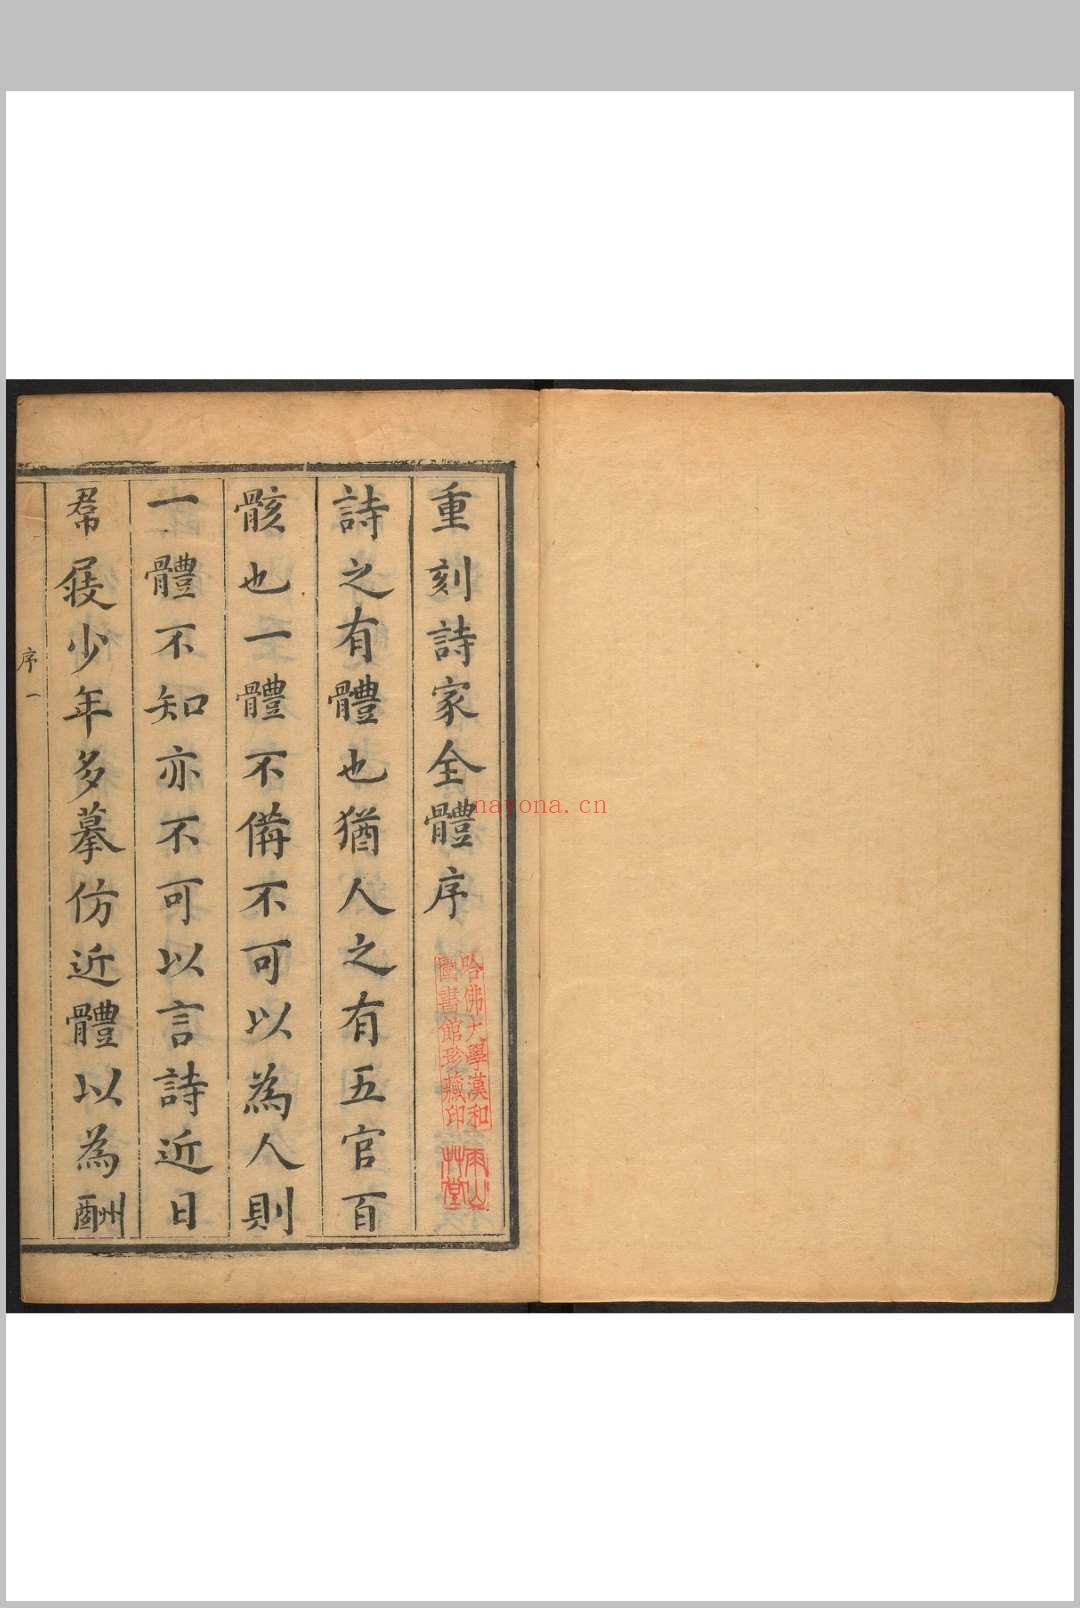 重刻詩家全體序
詩之有體也猶人之有五官百
骸也一體不備不可以為人則
一體不知亦不可以言詩近日
帬屐少年多摹仿近體以為酬
序一
哈佛大學漢和
圖書館珍藏印
雨山
草堂
nayona.cn